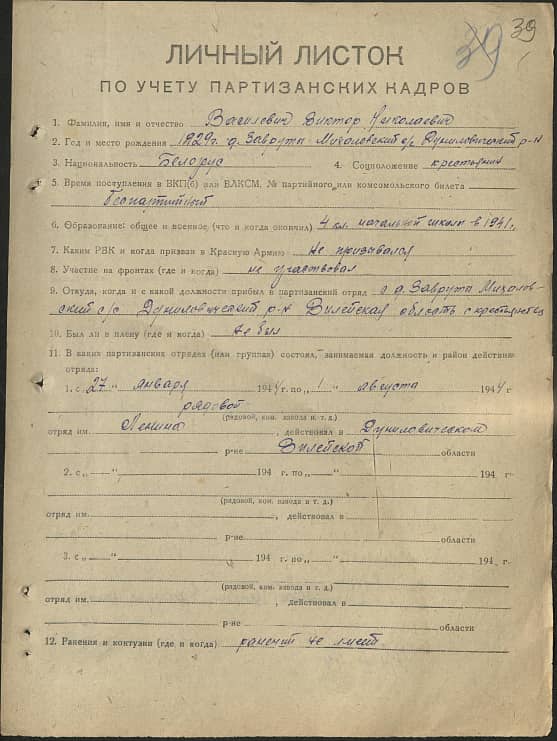 39 39
ЛИЧНЫЙ ЛИСТОК
ПО УЧЕТУ ПАРТИЗАНСКИХ КАДРОВ
1. Фамилия, имя и отчество Василевич Виктор Николаевич
2. Год и место рождения 1929 г. д. Завруты Михаловский с/с Дуниловичский р-н
3. Национальность Белорус 4. Соцположение крестьянин
5. Время поступления в ВКП(б) или ВЛКСМ, № партийного или комсомольского билета
беспартийный
6. Образование: общее и военное (что и когда окончил) 4 кл. начальной школы в 1941 г.
7. Каким РВК и когда призван в Красную Армию Не призывался
8. Участие на фронтах (где и когда) не участвовал
9. Откуда, когда и с какой должности прибыл в партизанский отряд с д. Завруты Михалов-
ский с/с Дуниловичский р-н Вилейская область с
10. Был ли в плену (где и когда) не был
11. В каких партизанских отрядах (или группах) состоял, занимаемая должность и район действия
отряда:
1. с „27" января 1944 г. по „1" августа 1944 г
рядовой
(рядовой, ком. взвода и т. д.)
отряд им. Ленина, действовал в Дуниловичском
р-не Вилейской области
2. с „ " 194 г. по „ " 194 г
(рядовой, ком. взвода и т. д.)
отряд им. , действовал в
р-не области
3. с „ " 194 г. по „ " 194 г
(рядовой, ком. взвода и т. д.)
отряд им. , действовал в
р-не области
12. Ранения и контузии (где и когда) ранений не имеет.